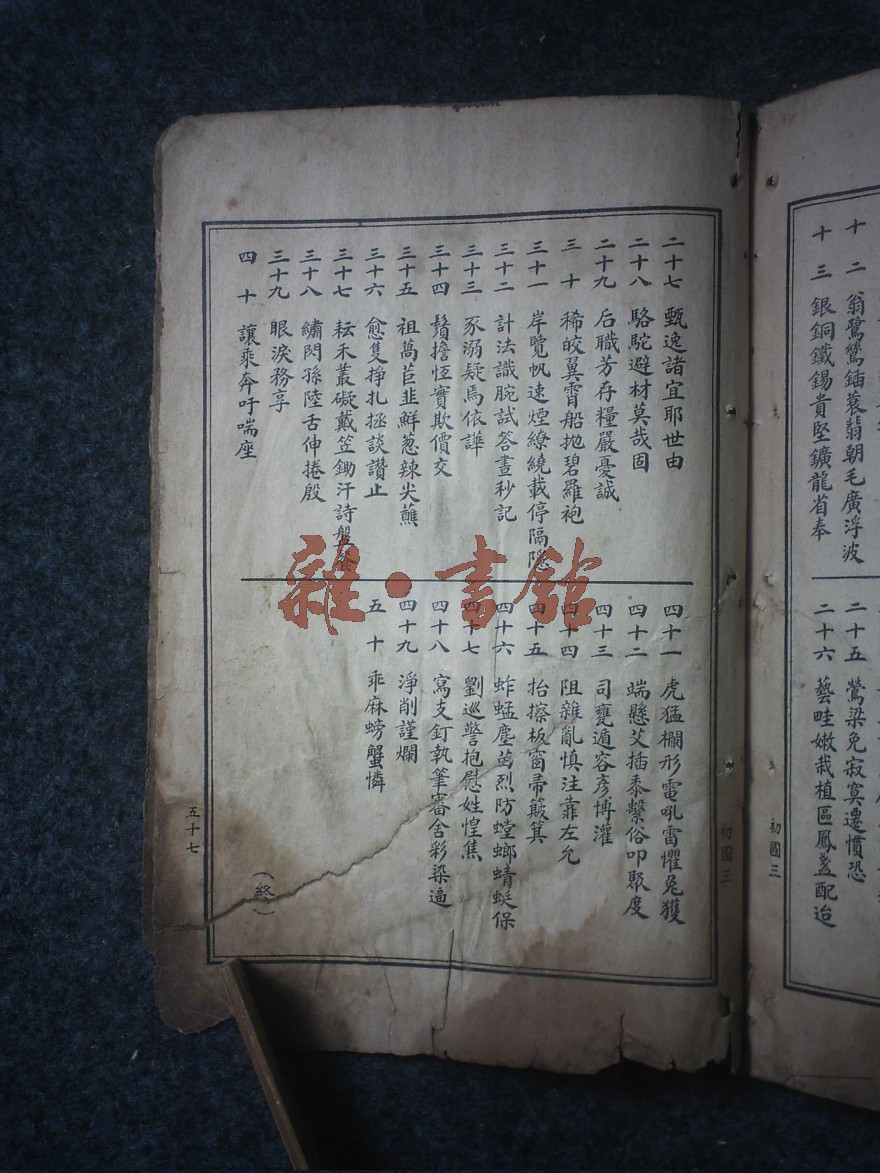 十二 翁鷺鷥鍤蓑翡朝毛廣浮波
十三 銀銅鐵錫貴堅鑛龍省奉
二十五 鶯梁免寂寞遷慣恐
二十六 藝哇嫩栽植區鳳盞配迨
初國三
初國三
二十七 甄逸諸宜耶世由
二十八 駱駝避材莫哉固
二十九 后職芳存糧嚴憂誠
三十 稀皎翼霄船地碧羅袍
三十一 岸覽帆速煙繚繞載停隔隱
三十二 計法識腕試答晝秒記
三十三 豕溺疑焉依譁
三十四 鬚擔恆實欺價交
三十五 祖萬苣韭鮮蔥辣尖蘸
三十六 愈隻掙扎拯談讚止
三十七 耘禾叢礙戴笠鋤汗詩盤
三十八 繡閃孫陸舌伸捲殷
三十九 眼淚務享
四十 讓乘奔吁喘座
四十一 虎猛欄形電吼雷懼兔獲
四十二 端懸艾插黍繫俗叩聚度
四十三 司甕遁容彥博灌
四十四 阻雜亂慎注靠左允
四十五 抬擦板窗帚簸箕
四十六 蚱蜢塵齒烈防螳螂蜻蜓保
四十七 劉巡警抱慰姓惶焦
四十八 寫支釘執筆審舍彩染逼
四十九 淨削謹爛
五十 乖麻螃蟹憐
(終)
五十七
雜·書館